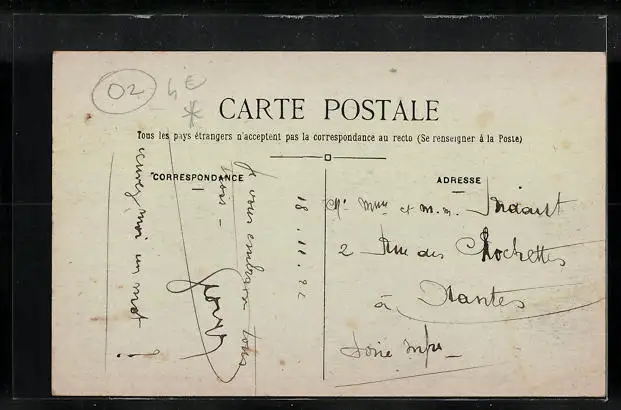 02
4€
*
CARTE POSTALE
Tous les pays étrangers n'acceptent pas la correspondance au recto (Se renseigner à la Poste)
CORRESPONDANCE
ADRESSE
18.11.22
Je vous embrasse tous
trois -
écrivez moi un mot !
Mr Mme et M.
2 Rue des Rochettes
à Nantes
Loire Infre